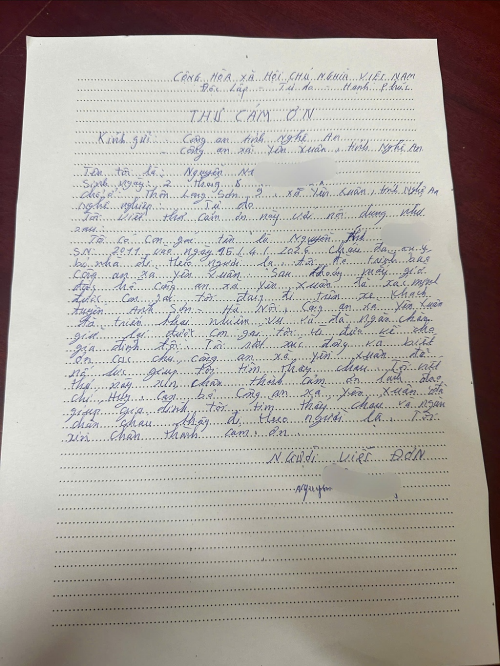 CỘNG HÒA XÃ HỘI CHỦ NGHĨA VIỆT NAM
Độc lập - Tự do - Hạnh Phúc
THƯ CẢM ƠN
Kính gửi: Công an tỉnh Nghệ An
- Công an xã Yên Xuân, tỉnh Nghệ An
Tên tôi là: Nguyễn
Sinh ngày: 2 tháng 8
chỗ ở: Thôn Lạng Sơn 9, xã Yên Xuân, tỉnh Nghệ An
nghề nghiệp: Tự do
Tôi viết thư cảm ơn này với nội dung như
sau:
Tôi có con gái tên là Nguyễn
SN 2011 vào ngày 15/4/2026 cháu đã
bỏ nhà đi theo người lạ tôi đã trình báo
Công an xã Yên Xuân. Sau khoảng mấy giờ
đồng hồ Công an xã Yên Xuân đã xác minh
được con gái tôi đang đi trên xe khách
tuyến Anh Sơn - Hà Nội, Công an xã Yên Xuân
đã triển khai nhiệm vụ và đã ngăn chặn
giữ lại được con gái tôi và đưa về cho
gia đình tôi. Tôi rất xúc động và biết
ơn các chú công an xã Yên Xuân đã
nỗ lực giúp tôi tìm thấy cháu. Tôi viết
thư này xin chân thành cảm ơn lãnh đạo
chỉ huy, cán bộ Công an xã Yên Xuân đã
giúp gia đình tôi tìm thấy cháu và ngăn
chặn cháu đi theo người lạ. Tôi
xin chân thành cảm ơn.
NGƯỜI VIẾT ĐƠN
Nguyễn